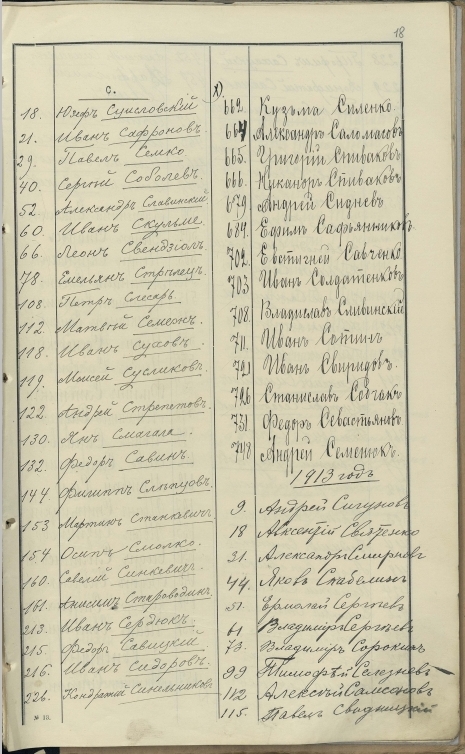 18
С.
18. Юзефъ Суисловскій
21. Иванъ Сафроновъ.
29. Павелъ Семко
40. Сергѣй Соболевъ.
52. Александръ Славинскій
60. Иванъ Скульме
66. Леонъ Свендзіолъ
78. Емельянъ Стрѣлецъ.
108. Петръ Слесарь
112. Матвѣй Семенъ.
118. Иванъ Суховъ
119. Моисей Сусликовъ.
122. Андрей Стрепетовъ
130. Янъ Смагала.
132. Федоръ Савинъ.
144. Филиппъ Слѣпцовъ.
153 Мартинъ Станкевичъ
154. Осипъ Смолко.
160. Савелій Синкевичъ.
161. Анисимъ Старододинъ
213. Иванъ Сердюкъ.
215. Федоръ Савицкій
216. Иванъ Сидоровъ.
226. Кондратій Синельниковъ
№ 10.
662. Кузьма Силенко
664 Александръ Саломатовъ
665. Григорій Спиваковъ
666. Никаноръ Спиваковъ
679. Андрей Сиднев
684. Ефимъ Сафьянниковъ
702. Евстигней Савченко
703 Иванъ Солдатенковъ
708. Владиславъ Сливинскій
711. Иванъ Сотинъ
721 Иванъ Свиридовъ.
726. Станиславъ Совгакъ
731. Федоръ Севастьяновъ
748 Андрей Семенюкъ.
1913 годъ
9. Андрей Сигуновъ
18 Авксентій Святенко
31. Александръ Смирновъ
44. Яковъ Скабелинъ
51. Ермолай Сергѣевъ
61 Владиміръ Сергѣевъ
73. Владиміръ Сорокинъ
99 Тимофѣй Селезневъ
112 Алексѣй Самсоновъ
115. Павелъ Свадницкій